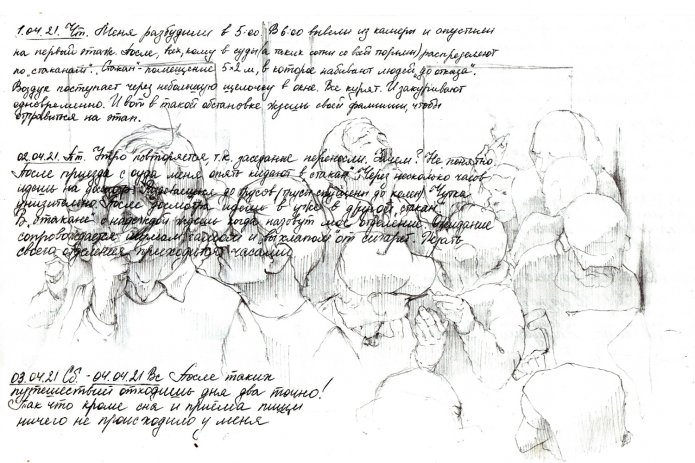 1.04.21. Чт. Меня разбудили в 5:00. В 6:00 вывели из камеры и опустили
на первый этаж. После, всех, кому в суды (а таких сотни со всей тюрьмы) распределяют
по „стаканам". „Стакан" помещение 5×2 м, в которое набивают людей „до отказа".
Воздух поступает через небольшую щелочку в окне. Все курят. И закуривают
одновременно. И вот в такой обстановке ждешь своей фамилии, чтобы
отправится на этап.
02.04.21. Пт. Утро повторяется, т.к. заседание перенесли. Зачем? Не понятно
После приезда с суда меня опять кидают в „стакан". Через несколько часов
идешь на досмотр. Раздеваешься до трусов (трусы спущены до колен). Чутка
унизительно. После досмотра идешь в уже в другой „стакан".
В „стакане" с надеждой ждешь когда назовут мое отделение. Ожидание
сопровождается и выхлапом от сигарет. Ждать
своего отделения приходилось часами
03.04.21 Сб. - 04.04.21 Вс После таких
путешествий отходишь дня два точно!
Так что кроме сна и приёма пищи
ничего не происходило у меня